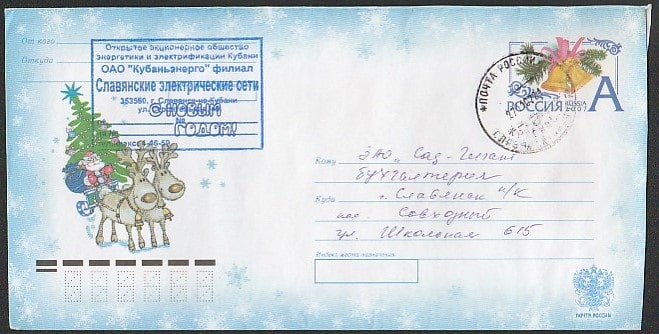 От кого
Откуда
Открытое акционерное общество
энергетики и электрификации Кубани
ОАО "Кубаньэнерго" филиал
Славянские электрические сети
353560, г. Славянск-на-Кубани
ул.
С НОВЫМ
№
ГОДОМ!
4-46-52
*ПОЧТА РОССИИ
РОССИЯ RUSSIA
2007
А
Кому ЗАО "Сад-Гигант
бухгалтерия
Куда г. Славянск н/К
пос. Совхозный
ул. Школьная 615
Индекс места назначения
ПОЧТА РОССИИ